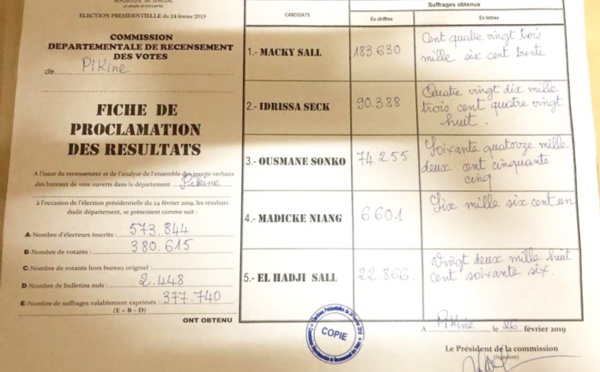 REPUBLIQUE DU SENEGAL
ELECTION PRESIDENTIELLE du 24 février 2019
COMMISSION
DEPARTEMENTALE DE RECENSEMENT
DES VOTES
de Pikine
FICHE DE
PROCLAMATION
DES RESULTATS
A l'issue du recensement et de l'analyse de l'ensemble des procès-verbaux
des bureaux de vote ouverts dans le département Pikine
à l'occasion de l'élection présidentielle du 24 février 2019, les résultats
dudit département, se présentent comme suit :
A- Nombre d'électeurs inscrits : 573.844
B- Nombre de votants : 380.615
C- Nombre de votants hors bureau originel :
D- Nombre de bulletins nuls : 2.448
E- Nombre de suffrages valablement exprimés : 377.740
(E = B - D)
ONT OBTENU
CANDIDATS
Suffrages obtenus
En chiffres
En lettres
1.- MACKY SALL
183.630
Cent quatre vingt trois
mille six cent trente
2.- IDRISSA SECK
90.388
Quatre vingt dix mille
trois cent quatre vingt
huit.
3.- OUSMANE SONKO
74 255
Soixante quatorze mille
deux cent cinquante
cinq
4.- MADICKE NIANG
6 601
Six mille six cent un
5.- EL HADJI SALL
22 866
Vingt deux mille huit
cent soixante six.
COPIE
A Pikine le 26 février 2019
Le Président de la commission
(Signature)